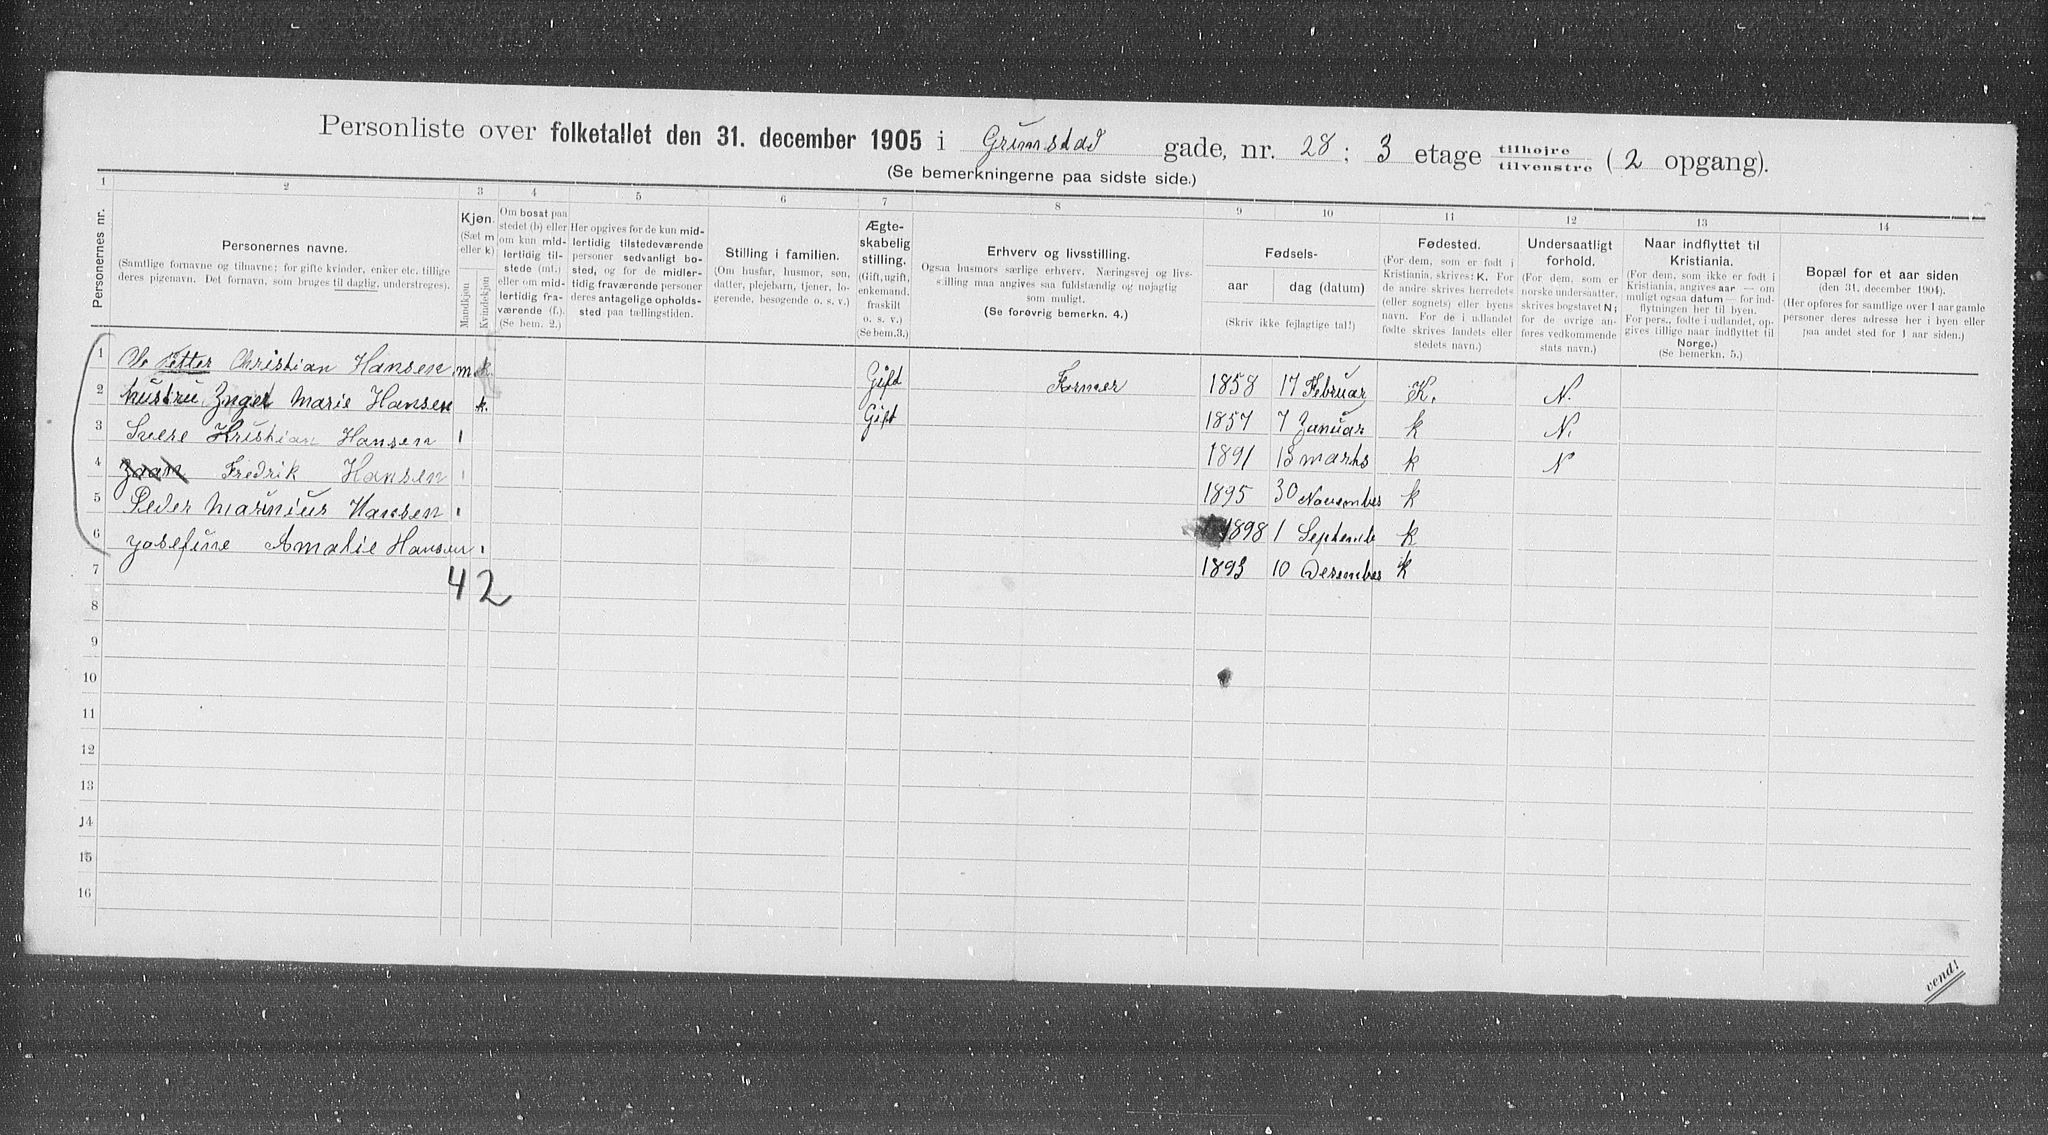 Personliste over folketallet den 31. december 1905 i Grimstad gade, nr. 28; 3 etage tilhøjre tilvenstre (2 opgang).
(Se bemerkningerne paa sidste side.)
1 2 3 4 5 6 7 8 9 10 11 12 13 14
Personernes nr.
Personernes navne.
(Samtlige fornavne og tilnavne; for gifte kvinder, enker etc. tillige deres pigenavn. Det fornavn, som bruges til daglig, understreges).
Kjøn.
(Sæt m eller k)
Mandkjøn
Kvindekjøn
Om bosat paa stedet (b) eller om kun midlertidig tilstede (mt.) eller om midlertidig fraværende (f.). (Se bem. 2.)
Her opgives for de kun midlertidig tilstedeværende personer sedvanligt bosted, og for de midlertidig fraværende personer deres antagelige opholdssted paa tællingstiden.
Stilling i familien.
(Om husfar, husmor, søn, datter, plejebarn, tjener, logerende, besøgende o. s. v.)
Ægteskabelig stilling.
(Gift, ugift, enkemand, fraskilt o. s. v.)
(Se bem. 3.)
Erhverv og livsstilling.
Ogsaa husmors særlige erhverv. Næringsvej og livsstilling maa angives saa fuldstændig og nøjagtig som muligt.
(Se forøvrig bemerkn. 4.)
Fødsels-
aar
dag (datum)
(Skriv ikke fejlagtige tal!)
Fødested.
(For dem, som er født i Kristiania, skrives: K. For de andre skrives herredets (eller sognets) eller byens navn. For de i udlandet fødte skrives landets eller stedets navn.)
Undersaatligt forhold.
(For dem, som er norske undersaatter, skrives bogstavet N; for de øvrige anføres vedkommende stats navn.)
Naar indflyttet til Kristiania.
(For dem, som ikke er født i Kristiania, angives aar — om muligt ogsaa datum — for indflytningen her til byen. For pers., fødte i udlandet, opgives tillige naar indflyttet til Norge.)
(Se bemerkn. 5.)
Bopæl for et aar siden
(den 31. december 1904).
(Her opføres for samtlige over 1 aar gamle personer deres adresse her i byen eller paa andet sted for 1 aar siden.)
1 Petter Christian Hansen m Gift Former 1858 17 Februar K. N.
2 hustru Inger Marie Hansen k. Gift 1857 7 Januar k N.
3 Kristian Hansen 1 1891 marts k N
4 Fredrik Hansen 1 1895 30 November k
5 Peder Marinius Hansen 1 1898 1 September k
6 Josefine Amalie Hansen 1 1893 10 Desember k
7
42
8
9
10
11
12
13
14
15
16
vend!